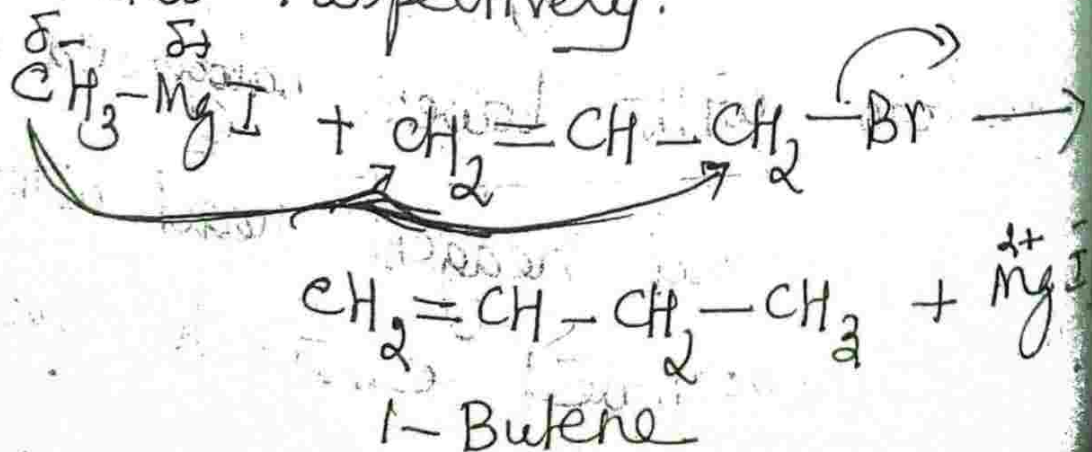 respectively.
δ- δ+
CH₃-MgI + CH₂=CH-CH₂-Br →
CH₂=CH-CH₂-CH₃ + Mg²⁺I
1-Butene